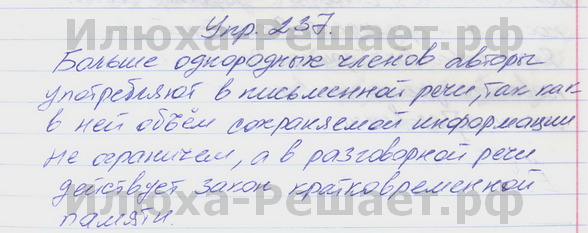 Упр. 237.
Больше однородных членов авторы
употребляют в письменной речи, так как
в ней объём сохраняемой информации
не ограничен, а в разговорной речи
действует закон кратковременной
памяти.
Илюха-Решает.рф
Илюха-Решает.рф